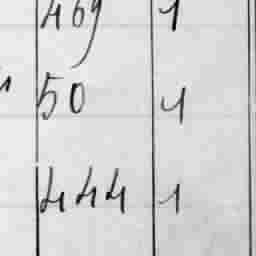 469 1
50 4
444 1